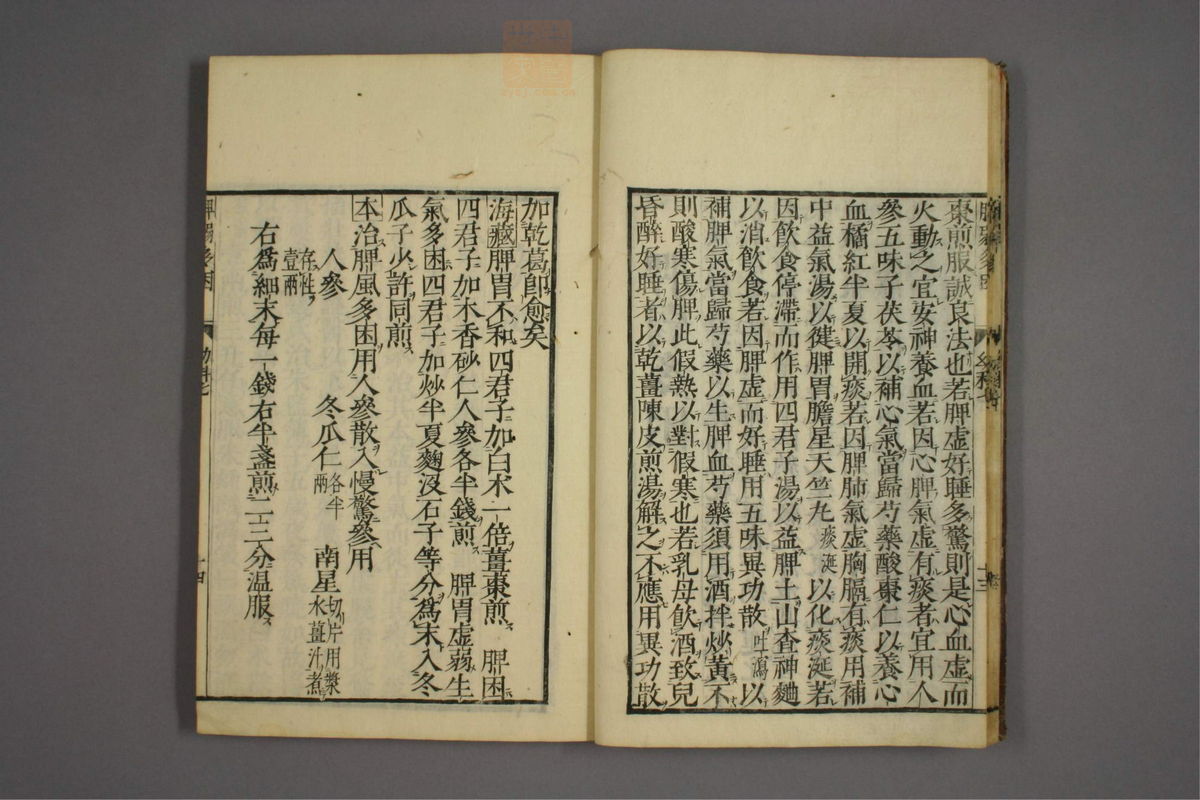 棗煎服誠良法也若脾虚好睡多驚則是心血虚而
火動之宜安神養血若因心脾氣虚有痰者宜用人
參五味子茯苓以補心氣當歸芍藥酸棗仁以養心
血橘紅半夏以開痰若因脾肺氣虚胸膈有痰用補
中益氣湯以健脾胃膽星天竺丸痰涎以化痰涎若
因飲食停滯而作用四君子湯以益脾土山查神麯
以消飲食若因脾虚而好睡用五味異功散吐瀉以
補脾氣當歸芍藥以生脾血芍藥須用酒拌炒黃不
則酸寒傷脾此假熱以對假寒也若乳母飲酒致兒
昏醉好睡者以乾薑陳皮煎湯解之不應用異功散
加乾葛即愈矣
海藏脾胃不和四君子加白朮一倍薑棗煎 脾困
四君子加木香砂仁人參各半錢煎 脾胃虚弱生
氣多困四君子加炒半夏麯没石子等分爲末入冬
瓜子少許同煎
本治脾風多困用人參散入慢驚參用
人參 冬瓜仁各半兩 南星切片用漿水薑汁煮
存性壹兩
右爲細末每一錢右半盞煎二三分温服
十四